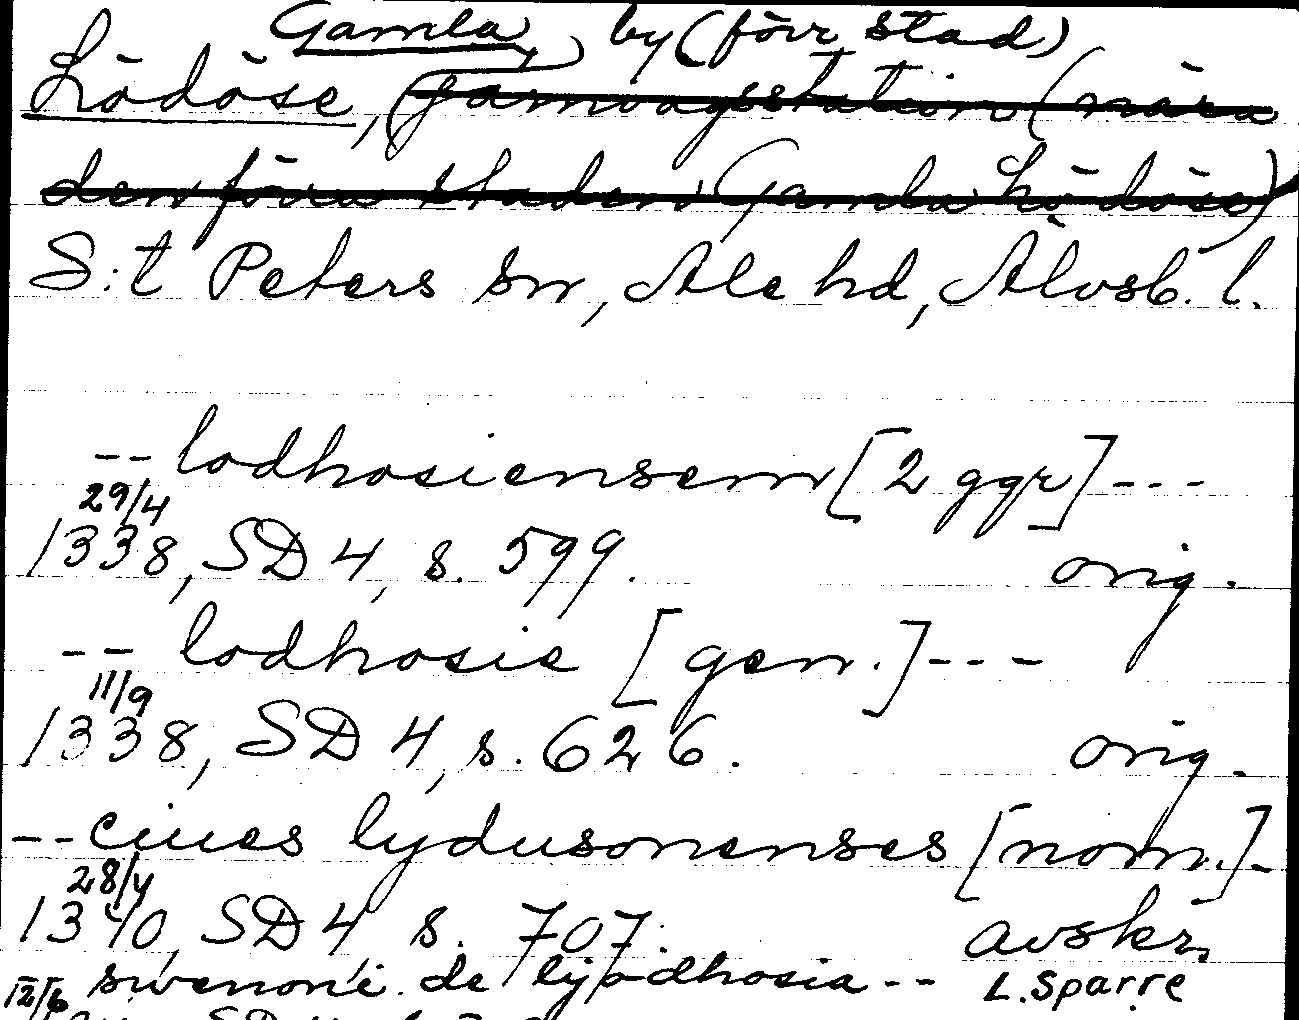 Gamla, by (förr stad)
Lödöse, (järnvägsstation (nära
den förra staden Gamla Lödöse)
S:t Peters sn, Ale hd, Älvsb. l.
-- lodhosiensem [2 ggr] ---
29/4
1338, SD 4, s. 599. orig.
-- lodhosie [gen.] ---
11/9
1338, SD 4, s. 626. orig.
-- ciues lydusonenses [nom.] -
28/4
1340, SD 4 s. 707. avskr.
swenoni de lyodhosia -- L. Sparre
12/6